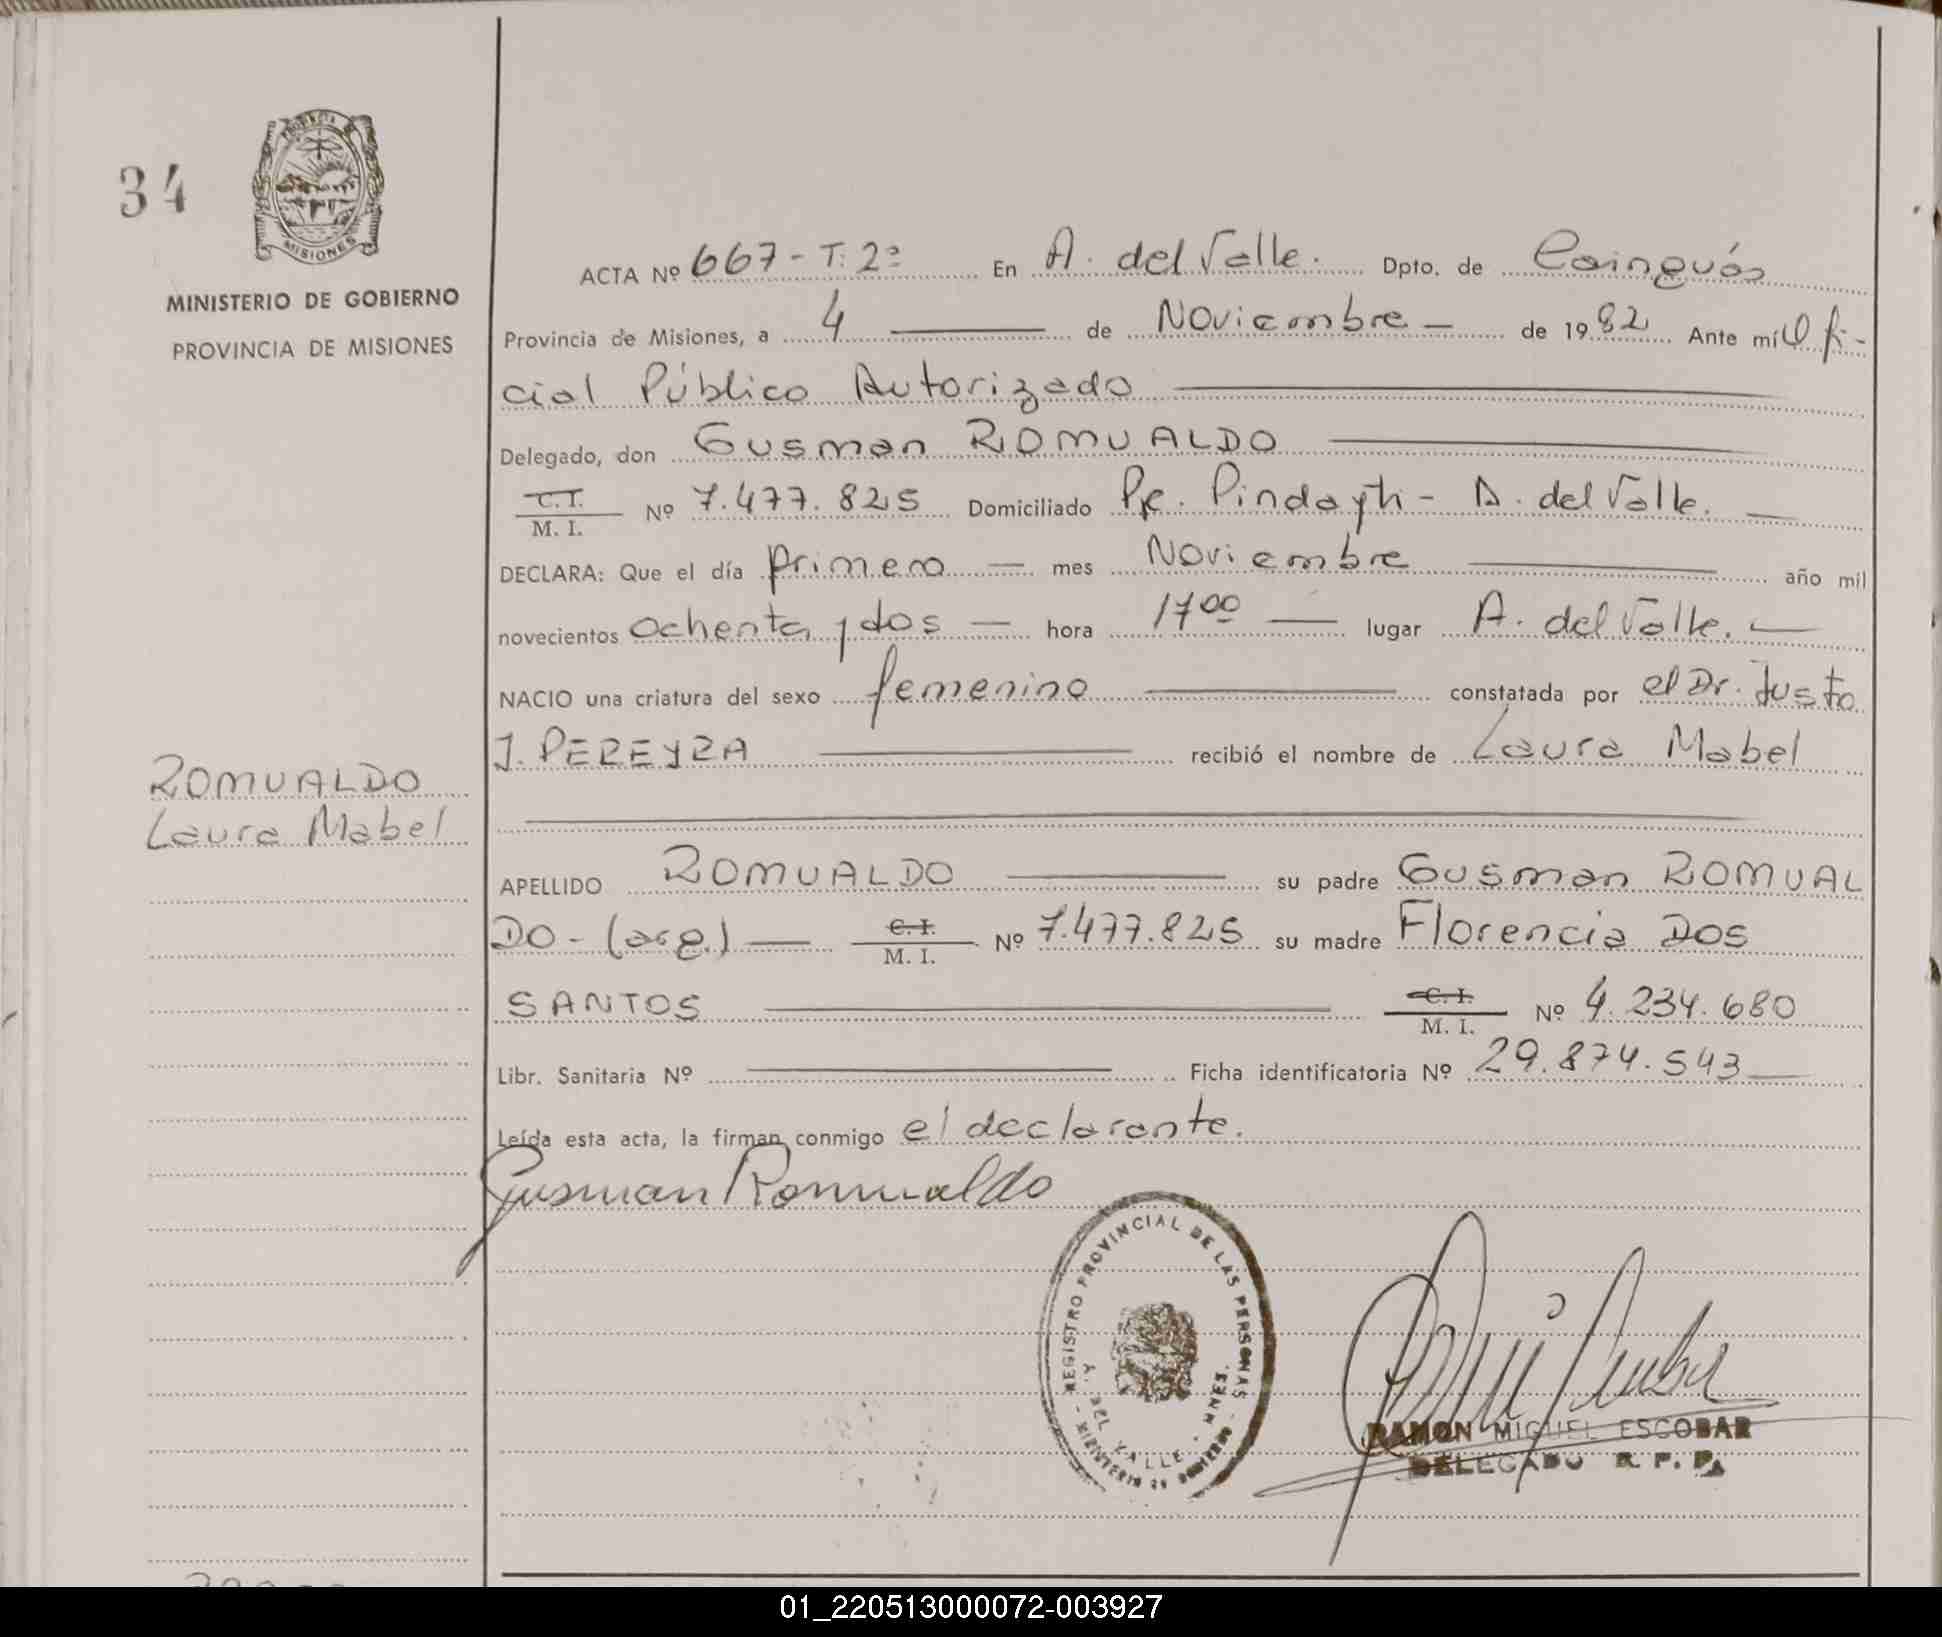 34
PROVINCIA DE
MISIONES
MINISTERIO DE GOBIERNO
PROVINCIA DE MISIONES
ROMUALDO
Laura Mabel
ACTA Nº 667 - T: 2º En A. del Valle. Dpto. de Cainguás
Provincia de Misiones, a 4 — de Noviembre — de 1982 Ante mí Ofi-
cial Público Autorizado
Delegado, don Gusman ROMUALDO
C.I. M. I. Nº 7.477.825 Domiciliado Pje. Pindayti - A. del Valle. —
DECLARA: Que el día primero — mes Noviembre — año mil
novecientos ochenta y dos — hora 17 00 — lugar A. del Valle. —
NACIO una criatura del sexo femenino — constatada por el Dr. Justo
J. PEREYRA — recibió el nombre de Laura Mabel
APELLIDO ROMUALDO — su padre Gusman ROMUAL
DO - (arg.) — C. I. M. I. Nº 7.477.825 su madre Florencia DOS
SANTOS — C. I. M. I. Nº 4.234.680
Libr. Sanitaria Nº — Ficha identificatoria Nº 29.874.543 —
Leída esta acta, la firman conmigo el declarante.
Gusman Romualdo
REGISTRO PROVINCIAL DE LAS PERSONAS
A. DEL VALLE - MNES.
- MINISTERIO DE GOBIERNO -
RAMON MIGUEL ESCOBAR
DELEGADO R. P. P.
01_220513000072-003927